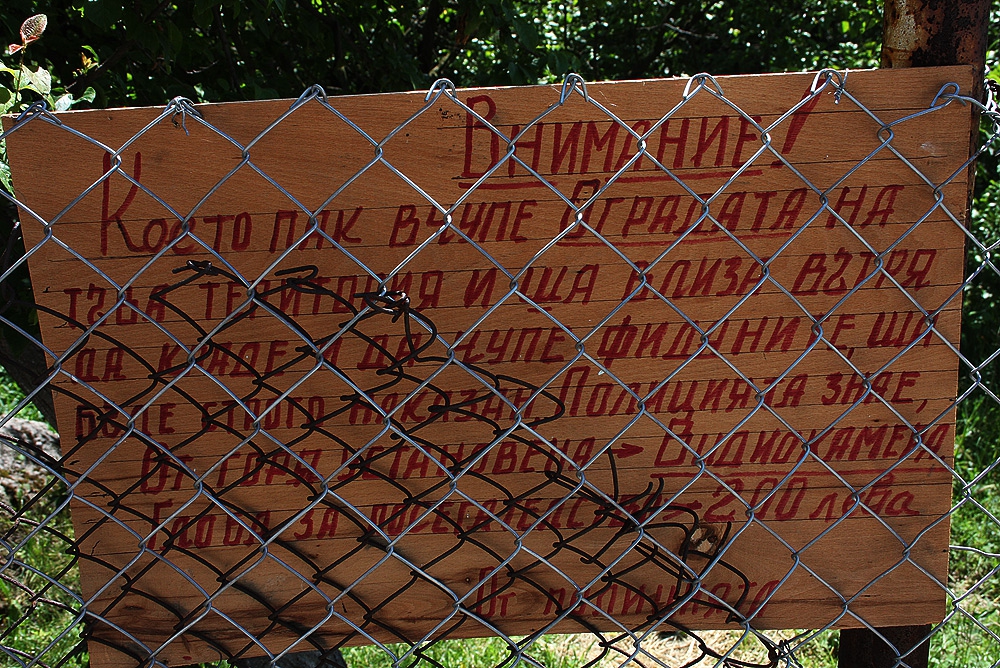 Внимание!
Който пак вчупе Оградата на
тъзи територия и ща влиза вътря
да краде и да чупе фидуните, ща
бъде строго наказан. Полицията знае,
От горя установена → Видиокамера
Глоба за посегателства – 200 лева
От полицията